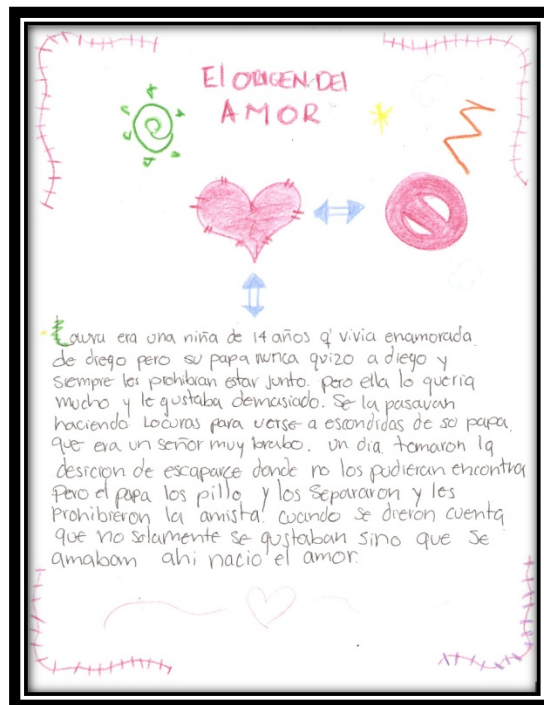 El ORIGEN DEl
AMOR
Laura era una niña de 14 años q' vivia enamorada
de diego pero su papa nunca quizo a diego y
siempre les prohibian estar junto. pero ella lo queria
mucho y le gustaba demasiado. Se la pasavan
haciendo Locuras para verse a escondidas de so papa.
que era un señor muy brabo. un dia tomaron la
desicion de escaparce donde no los pudieran encontra
pero el papa los pillo y los Separaron y les
prohibieron la amista. cuando se dieron cuenta
que no solamente se gustaban sino que se
amabam ahi nacio el amor.